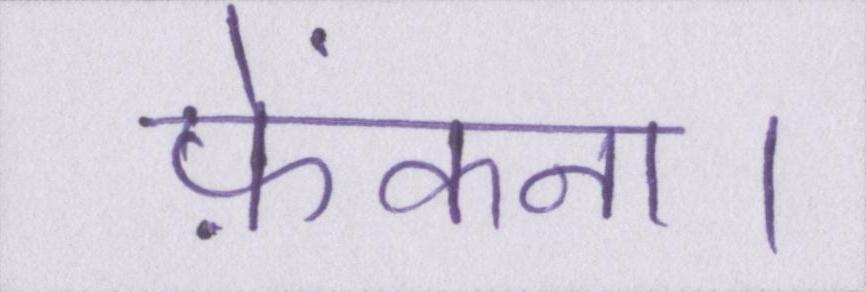 फ़ेंकना।